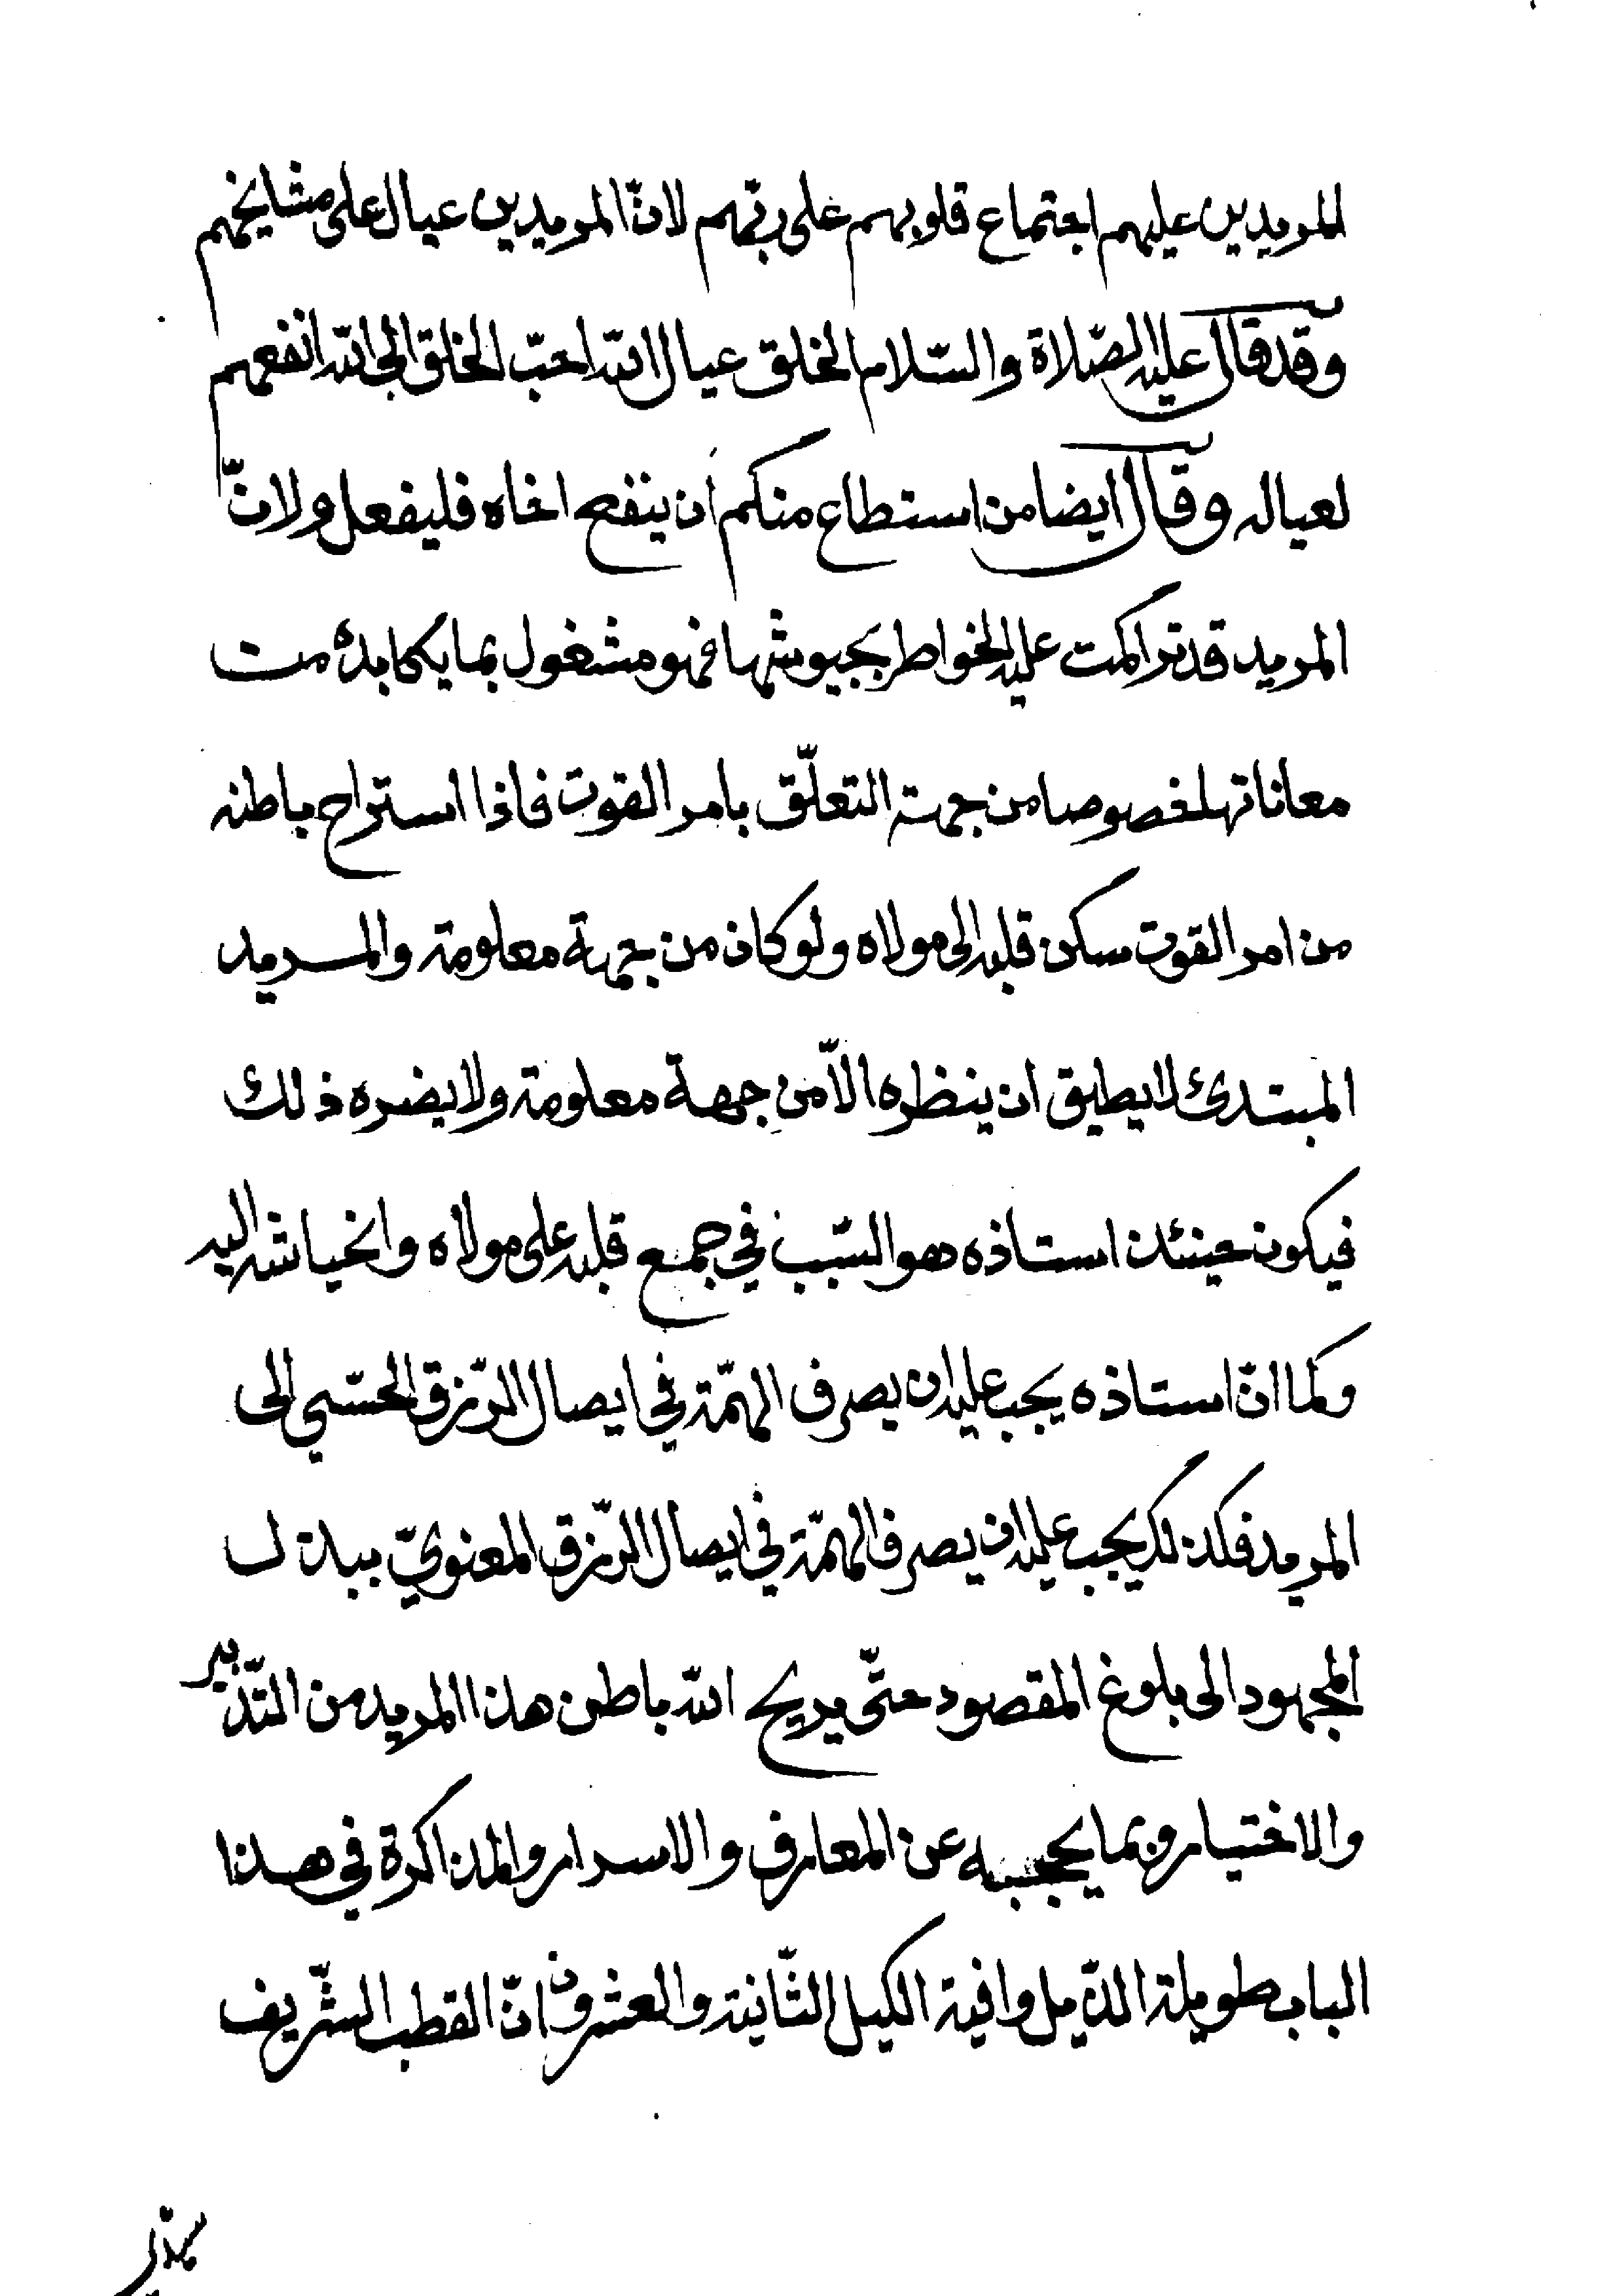 المريدين عليهم اجتماع قلوبهم على ربّهم لانّ المريدين عيال على مشايخهم
وقد قال عليه الصّلاة والسّلام الخلق عيال الله احبّ الخلق الى الله انفعهم
لعياله وقال ايضا من استطاع منكم أن ينفع اخاه فليفعل ولانّ
المريد قد تراكمت عليه الخواطر بجيوشها فهو مشغول بما يكابده من
معاناتها خصوصا من جهة التعلّق بامر القوت فاذا استراح باطنه
من امر القوت سكن قلبه الى مولاه ولو كان من جهة معلومة والمريد
المبتدئ لا يطيق ان ينظره الاّ من جهة معلومة ولا يضره ذلك
فيكون حينئذ استاذه هو السّبب في جمع قلبه على مولاه وانحياشه اليه
وكما انّ استاذه يجب عليه ان يصرف الهمّة في ايصال الرّزق الحسّي الى
المريد فكذلك يجب عليه ان يصرف الهمّة في ايصال الرّزق المعنويّ ببذل
المجهود الى بلوغ المقصود حتّى يريح الله باطن هذا المريد من التّدبير
والاختيار وبما يحجبه عن المعارف والاسرار والمذاكرة في هذا
الباب طويلة الذّيل وافية الكيل الثّانية والعشرون انّ القطب الشّريف